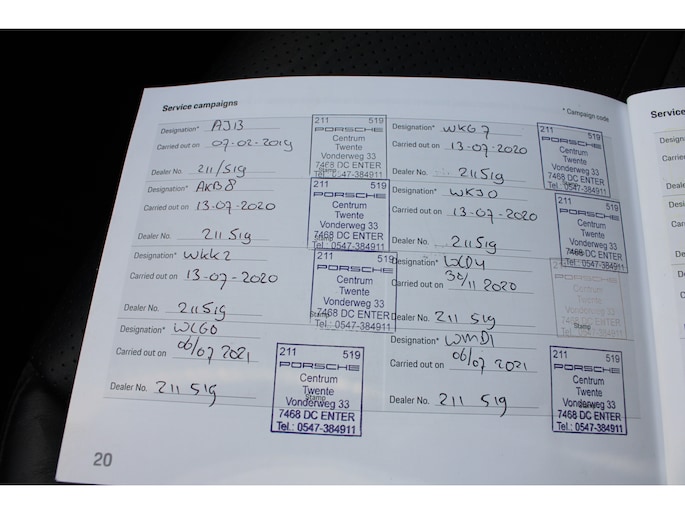 Service campaigns
* Campaign code
Designation* AJ13
Carried out on 07-02-2019
Dealer No. 211/519
211 519
PORSCHE
Centrum
Twente
Vonderweg 33
7468 DC ENTER
Tel.: 0547-384911
Designation* WKG7
Carried out on 13-07-2020
Dealer No. 211519
211 519
PORSCHE
Centrum
Twente
Vonderweg 33
7468 DC ENTER
Tel.: 0547-384911
Designation* AKB8
Carried out on 13-07-2020
Dealer No. 211519
211 519
PORSCHE
Centrum
Twente
Vonderweg 33
7468 DC ENTER
Tel.: 0547-384911
Designation* WKJ0
Carried out on 13-07-2020
Dealer No. 211519
211 519
PORSCHE
Centrum
Twente
Vonderweg 33
7468 DC ENTER
Tel.: 0547-384911
Designation* WKK2
Carried out on 13-07-2020
Dealer No. 211519
211 519
PORSCHE
Centrum
Twente
Vonderweg 33
7468 DC ENTER
Stamp
Tel.: 0547-384911
Designation*
Carried out on 30/11 2020
Dealer No. 211 519
Stamp
Designation* WLG0
Carried out on 06/07 2021
Dealer No. 211 519
211 519
PORSCHE
Centrum
Twente
Stamp
Vonderweg 33
7468 DC ENTER
Tel.: 0547-384911
Designation* WMD1
Carried out on 06/07 2021
Dealer No. 211 519
211 519
PORSCHE
Centrum
Twente
Vonderweg 33
7468 DC ENTER
Tel.: 0547-384911
20
Service